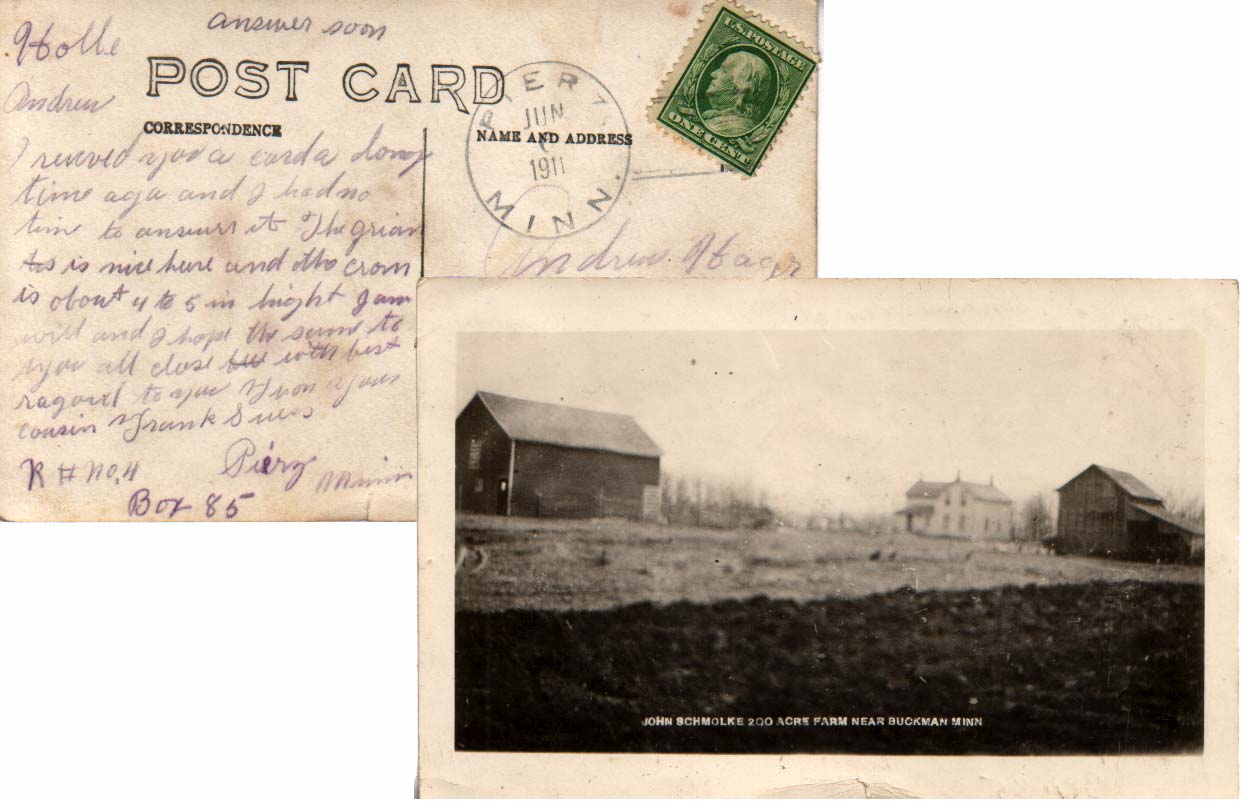 answer soon
Holle
Andrew
POST CARD
CORRESPONDENCE
NAME AND ADDRESS
PIERZ
JUN
1911
MINN.
U.S. POSTAGE
ONE CENT
I reieved you a carda long
time aga and I had no
time to answer it The grian
is nice here and the cron
is about 4 to 5 in hight I am
well and I hope the same to
you all close with best
ragard to you From your
cousin Frank
R # No, 4 Pierz Minn
Box 85
Andrew Hager
JOHN SCHMOLKE 200 ACRE FARM NEAR BUCKMAN MINN